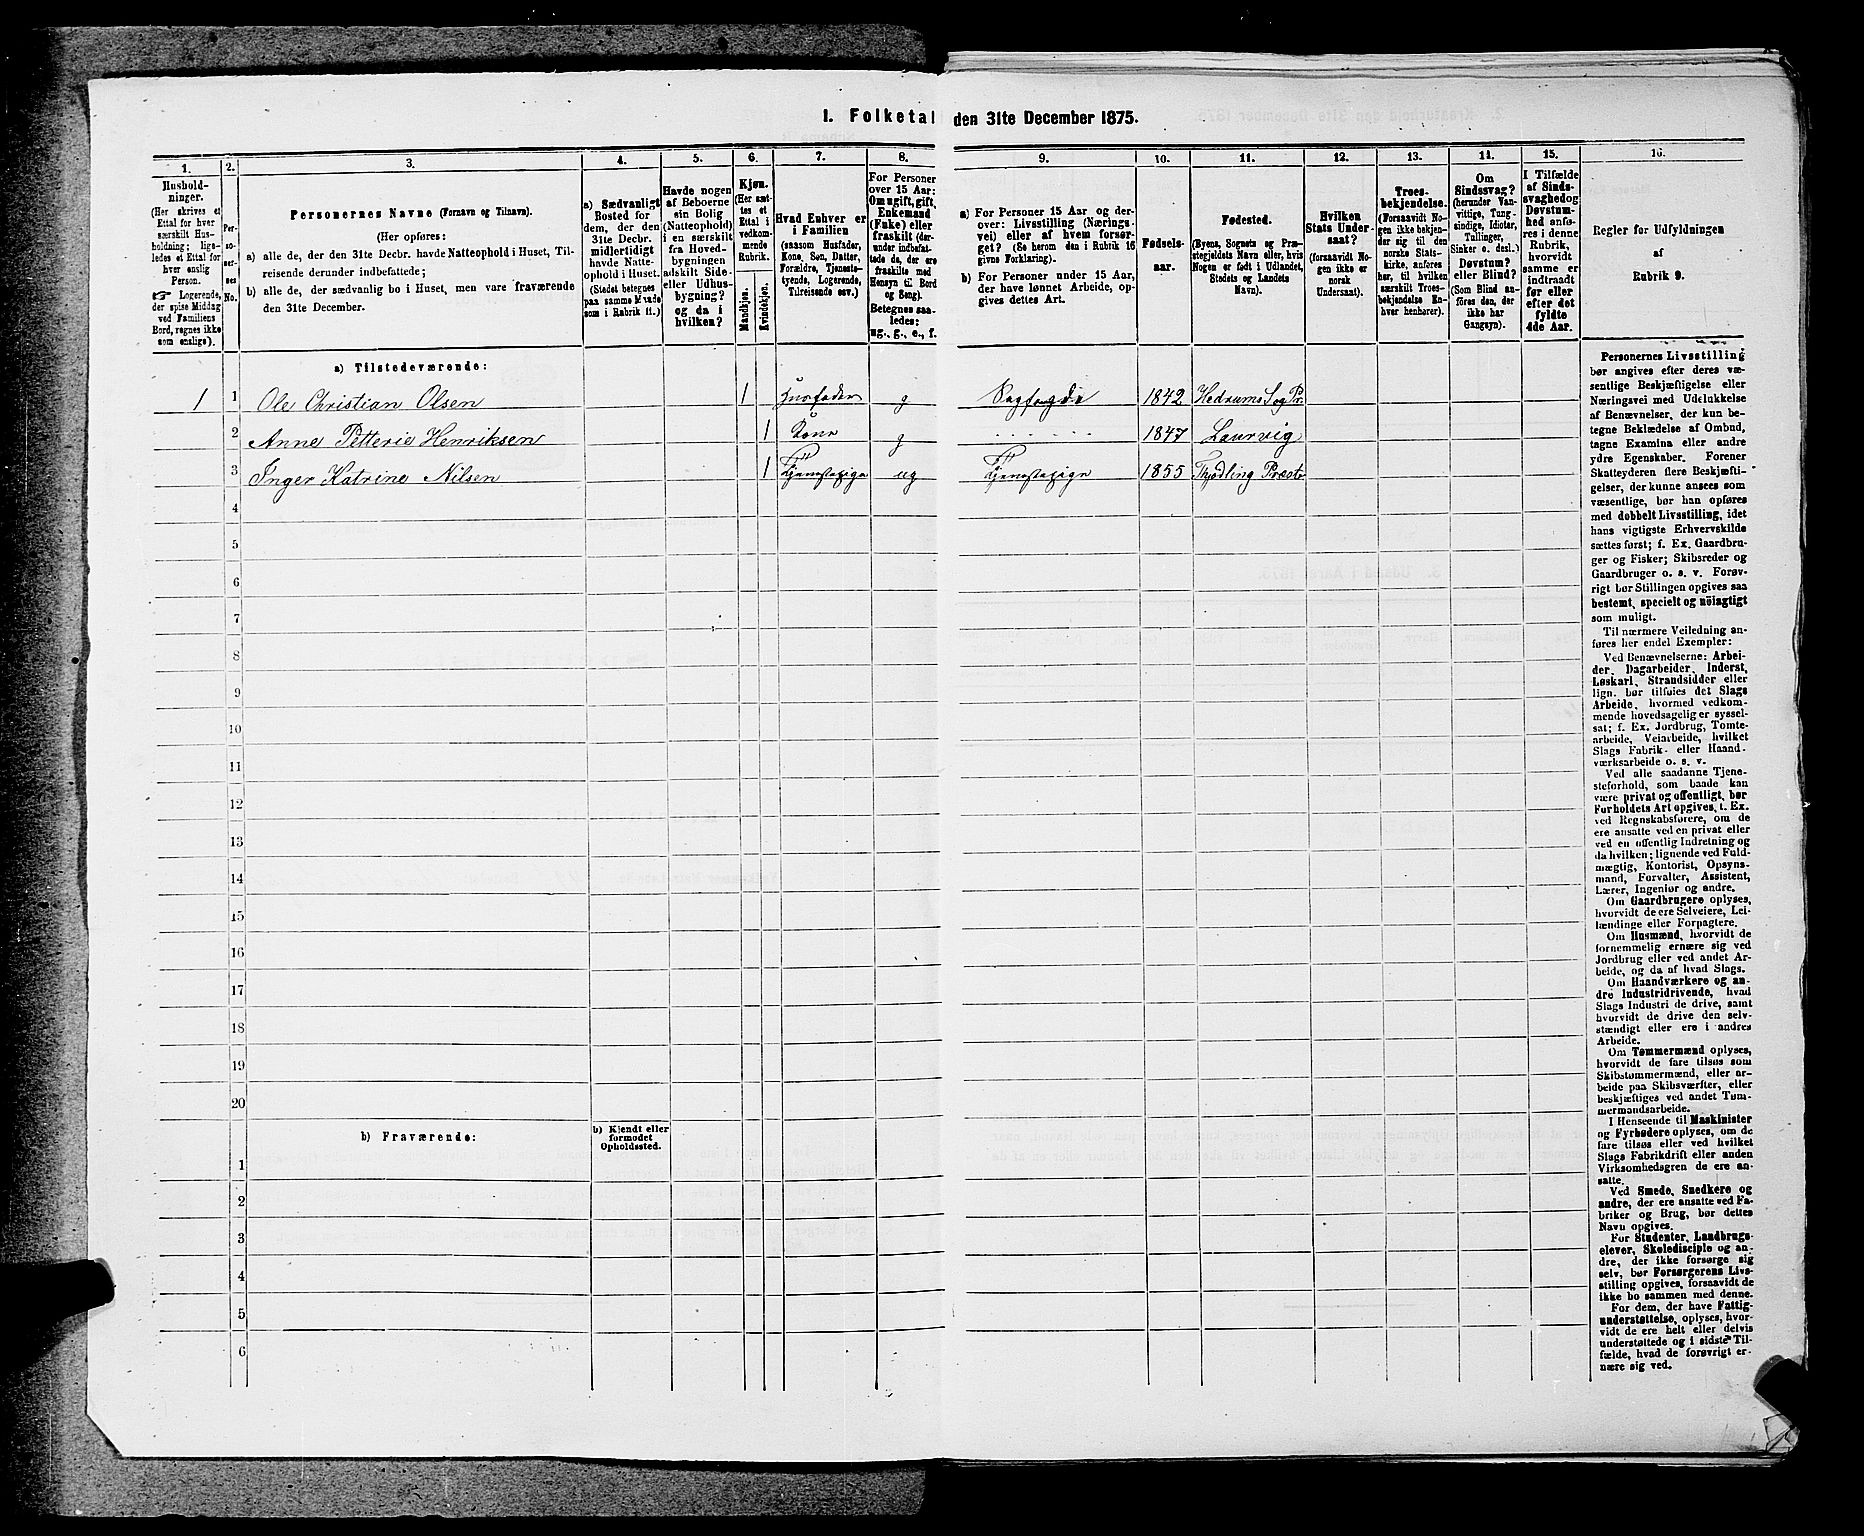 1. Folketal den 31te December 1875.
1.
Hushold-
ninger.
(Her skrives et
Ettal for hver
særskilt Hus-
holdning; lige-
ledes et Ettal for
hver enslig
Person.
☞ Logerende,
der spise Middag
ved Familiens
Bord, regnes ikke
som enslige).
2.
Per-
so-
ner-
nes
No.
3.
Personernes Navne (Fornavn og Tilnavn).
(Her opføres:
a) alle de, der den 31te Decbr. havde Natteophold i Huset, Til-
reisende derunder indbefattede;
b) alle de, der sædvanlig bo i Huset, men vare fraværende
den 31te December.
4.
a) Sædvanligt
Bosted for
dem, der den
31te Decbr.
midlertidigt
havde Natte-
ophold i Huset.
(Stedet betegnes
paa samme Maade
som i Rubrik 11.)
5.
Havde nogen
af Beboerne
sin Bolig
(Natteophold)
i en særskilt
fra Hoved-
bygningen
adskilt Side-
eller Udhus-
bygning?
og da i
hvilken?
6.
Kjøn.
(Her sæt-
tes et
Ettal i
vedkom-
mende
Rubrik.
Mandkjøn.
Kvindekjøn.
7.
Hvad Enhver er
i Familien
(saasom Husfader,
Kone, Søn, Datter,
Forældre, Tjeneste-
tyende, Logerende,
Tilreisende osv.)
8.
For Personer
over 15 Aar:
Om ugift, gift,
Enkemand
(Enke) eller
fraskilt (der-
under indbefat-
tede de, der ere
fraskilte med
Hensyn til Bord
og Seng).
Betegnes saa-
ledes:
ug., g., e., f.
9.
a) For Personer 15 Aar og der-
over: Livsstilling (Nærings-
vei) eller af hvem forsør-
get? (Se herom den i Rubrik 16
givne Forklaring).
b) For Personer under 15 Aar,
der have lønnet Arbeide, op-
gives dettes Art.
10.
Fødsels-
aar.
11.
Fødested.
(Byens, Sognets og Præ-
stegjeldets Navn eller, hvis
Nogen er født i Udlandet,
Stedets og Landets
Navn).
12.
Hvilken
Stats Under-
saat?
(forsaavidt No-
gen ikke er
norsk
Undersaat).
13.
Troes-
bekjendelse.
(Forsaavidt No-
gen ikke bekjen-
der sig til den
norske Stats-
kirke, anføres
her, til hvilken
særskilt Troes-
bekjendelse En-
hver henhører).
14.
Om
Sindssvag?
(herunder Van-
vittige, Tung-
sindige, Idioter,
Tullinger,
Sinker o. desl.)
Døvstum?
eller Blind?
(Som Blind an-
føres den, der
ikke har
Gangsyn).
15.
I Tilfælde
af Sinds-
svaghed og
Døvstum-
hed anfø-
res i denne
Rubrik,
hvorvidt
samme er
indtraadt
før eller
efter det
fyldte
4de Aar.
16.
Regler for Udfyldningen
af
Rubrik 9.
a) Tilstedeværende:
1 1 Ole Christian Olsen 1 Husfader g 1842 Hedrums Sog Pr.
2 Anne Petterie Henriksen 1 Kone g 1847 Laurvig
3 Inger Katrine Nilsen 1 Tjenestepige ug Tjenestepige 1855 Thjødling Præste
4
5
6
7
8
9
10
11
12
13
14
15
16
17
18
19
20
b) Fraværende:
b) Kjendt eller
formodet
Opholdssted.
1
2
3
4
5
6
Personernes Livsstilling
bør angives efter deres væ-
sentlige Beskjæftigelse eller
Næringsvei med Udelukkelse
af Benævnelser, der kun be-
tegne Beklædelse af Ombud,
tagne Examina eller andre
ydre Egenskaber. Forener
Skatteyderen flere Beskjæfti-
gelser, der kunne ansees som
væsentlige, bør han opføres
med dobbelt Livsstilling, idet
hans vigtigste Erhvervskilde
sættes først; f. Ex. Gaardbru-
ger og Fisker; Skibsreder og
Gaardbruger o. s. v. Forøv-
rigt bør Stillingen opgives saa
bestemt, specielt og nöiagtigt
som muligt.
Til nærmere Veiledning an-
føres her endel Exempler:
Ved Benævnelserne: Arbei-
der, Dagarbeider, Inderst,
Løskarl, Strandsidder eller
lign. bør tilføies det Slags
Arbeide, hvormed vedkom-
mende hovedsagelig er syssel-
sat; f. Ex. Jordbrug, Tomte-
arbeide, Veiarbeide, hvilket
Slags Fabrik- eller Haand-
værksarbeide o. s. v.
Ved alle saadanne Tjene-
steforhold, som baade kan
være privat og offentligt, bør
Forholdets Art opgives, t. Ex.
ved Regnskabsførere, om de
ere ansatte ved en privat eller
ved en offentlig Indretning og
da hvilken; lignende ved Fuld-
mægtig, Kontorist, Opsyns-
mand, Forvalter, Assistent,
Lærer, Ingeniør og andre.
Om Gaardbrugere oplyses,
hvorvidt de ere Selveiere, Lei-
lændinge eller Forpagtere.
Om Husmænd, hvorvidt de
fornemmelig ernære sig ved
Jordbrug eller ved andet Ar-
beide, og da af hvad Slags.
Om Haandværkere og an-
dre Industridrivende, hvad
Slags Industri de drive, samt
hvorvidt de drive den selv-
stændigt eller ere i andres
Arbeide.
Om Tømmermænd oplyses,
hvorvidt de fare tilsøs som
Skibstømmermænd, eller ar-
beide paa Skibsværfter, eller
beskjæftiges ved andet Tøm-
mermandsarbeide.
I Henseende til Maskinister
og Fyrbødere oplyses, om de
fare tilsøs eller ved hvilket
Slags Fabrikdrift eller anden
Virksomhedsgren de ere an-
satte.
Ved Smede, Snedkere og
andre, der ere ansatte ved Fa-
briker og Brug, bør dettes
Navn opgives.
For Studenter, Landbrugs-
elever, Skoledisciple og an-
dre, der ikke forsørge sig
selv, bør Forsørgerens Livs-
stilling opgives, forsaavidt de
ikke bo sammen med denne.
For dem, der have Fattig-
understøttelse, oplyses, hvor-
vidt de ere helt eller delvis
understøttede og i sidste Til-
fælde, hvad de forøvrigt er-
nære sig ved.